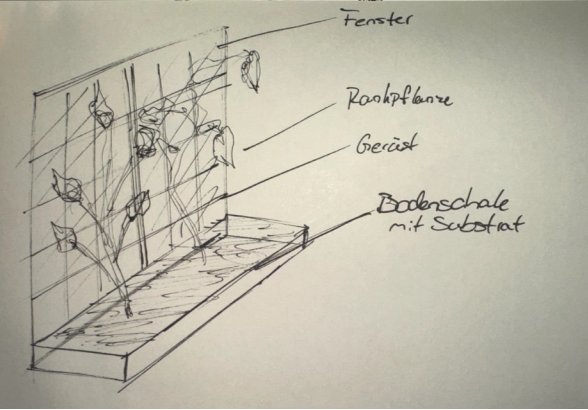 Fenster
Rankpflanze
Gerüst
Bodenschale
mit Substrat